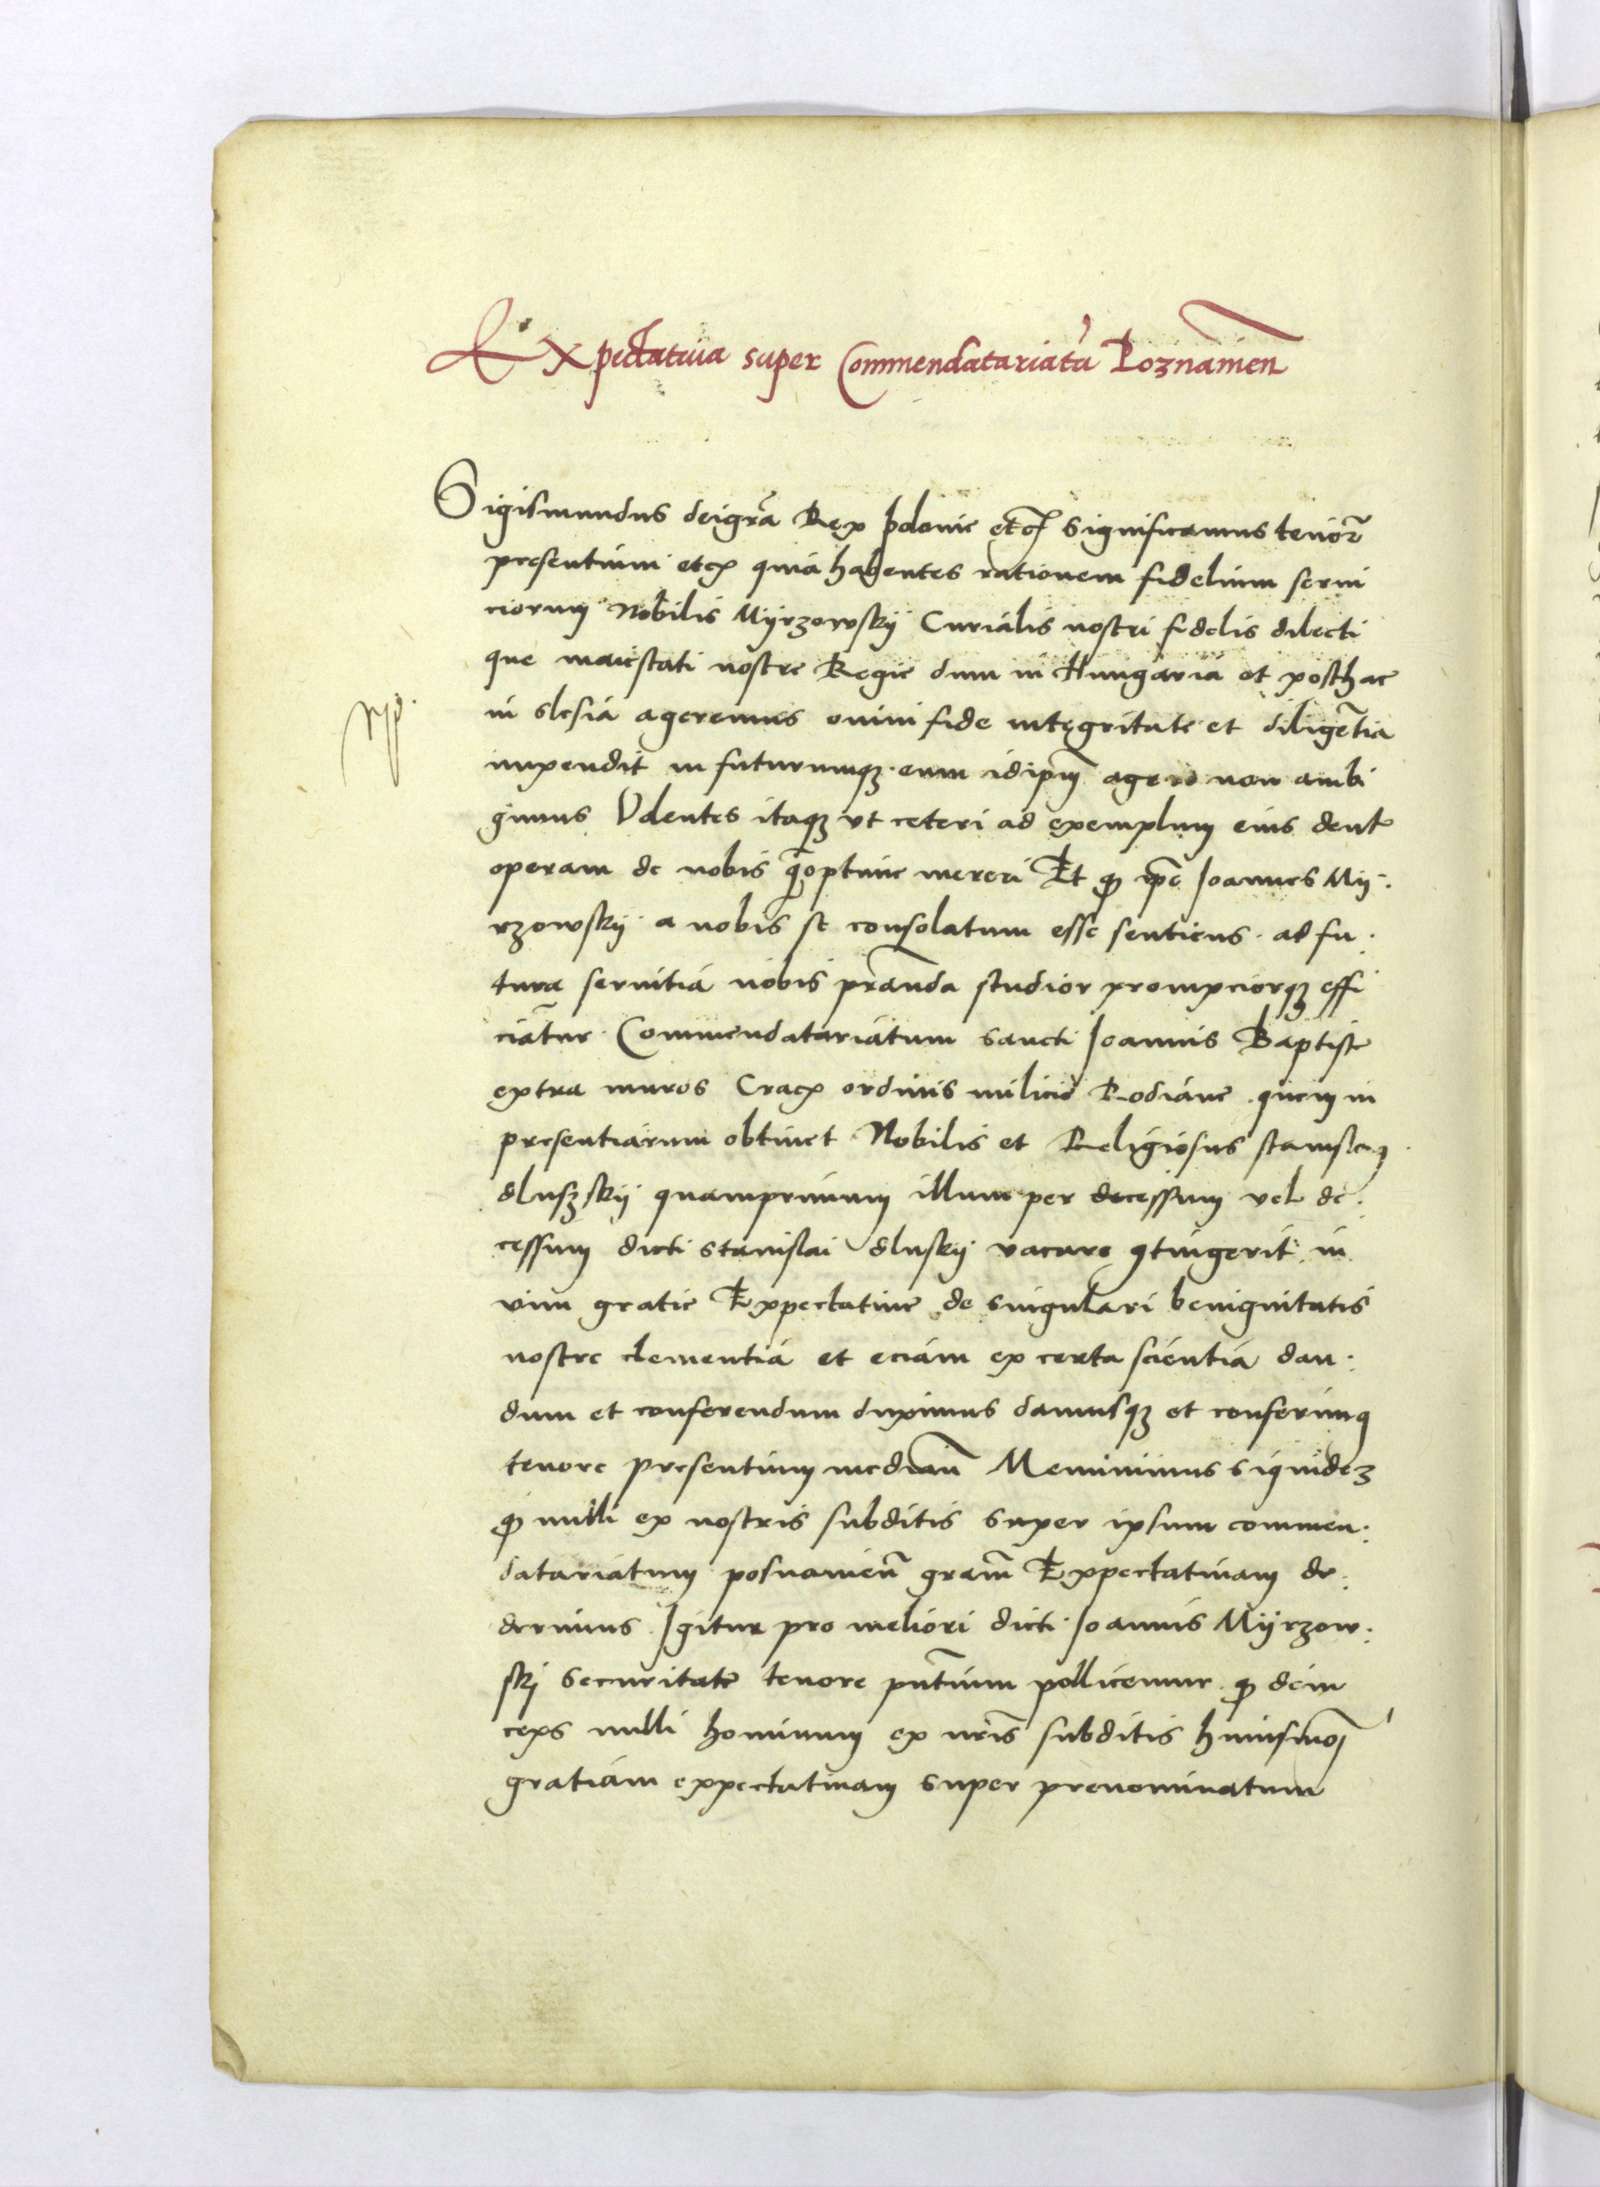 Expectatiua super Commendatariatu Poznamien
Sigismundus deigra Rex polonie etc Significamus tenor
presentium etc quia habentes rationem fidelium serui
ciorum Nobilis Myrzowsky Curialis nostri fidelis dilecti
que maiestati nostre Regie dum in Hungaria et posthac
in slesia ageremus omni fide integritate et diligetia
impendit in futurumq3 eum idipm agere non ambi
gimus Volentes itaq3 vt ceteri ad exemplum eius dent
operam de nobis q optime mereri Et q ipe Joannes My
rzowsky a nobis se consolatum esse sentiens ad fu
tura seruitia nobis pranda studior prompciorq3 effi
ciatur Commendatariatum sancti Joannis Baptiste
extra muros Crac ordinis milicie Rodiane quem in
presentiarum obtinet Nobilis et Religiosus stanislaus
dluszsky quamprimum illum per decessum vel de
cessum dicti stanislai dlusky vacare 9tingerit in
vim gratie Expectatiue de singulari benignitatis
nostre clementia et eciam ex certa scientia dan
dum et conferendum duximus damusq3 et conferimq
tenore presentium median Meminimus siquidez
q nulli ex nostris subditis super ipsum commen
datariatum posnamien gram Expectatiuam de
derimus Igitur pro meliori dicti Joannis Myrzow
ski securitate tenore pntium pollicemur q dein
ceps nulli hominum ex nris subditis huiusmoi
gratiam expectatiuam super prenominatum